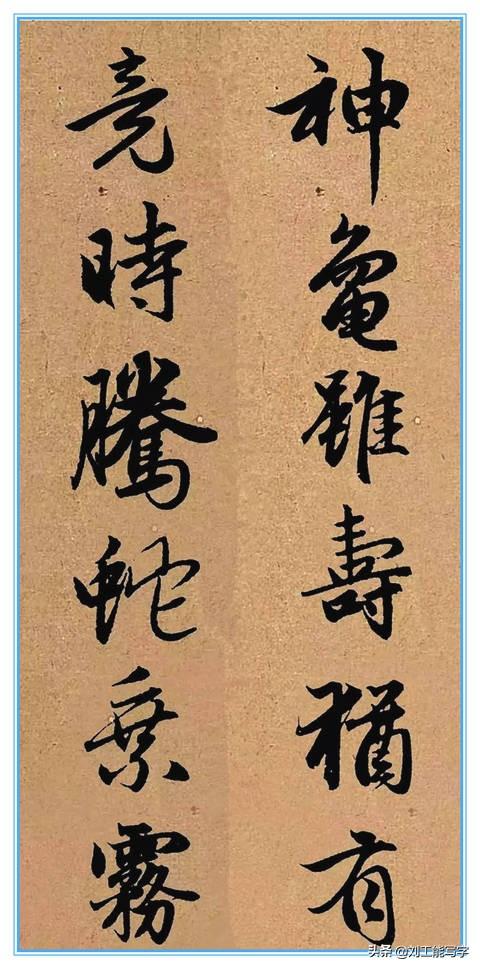 神龜雖壽猶有
竟時騰蛇乘霧
头条@刘工能写字